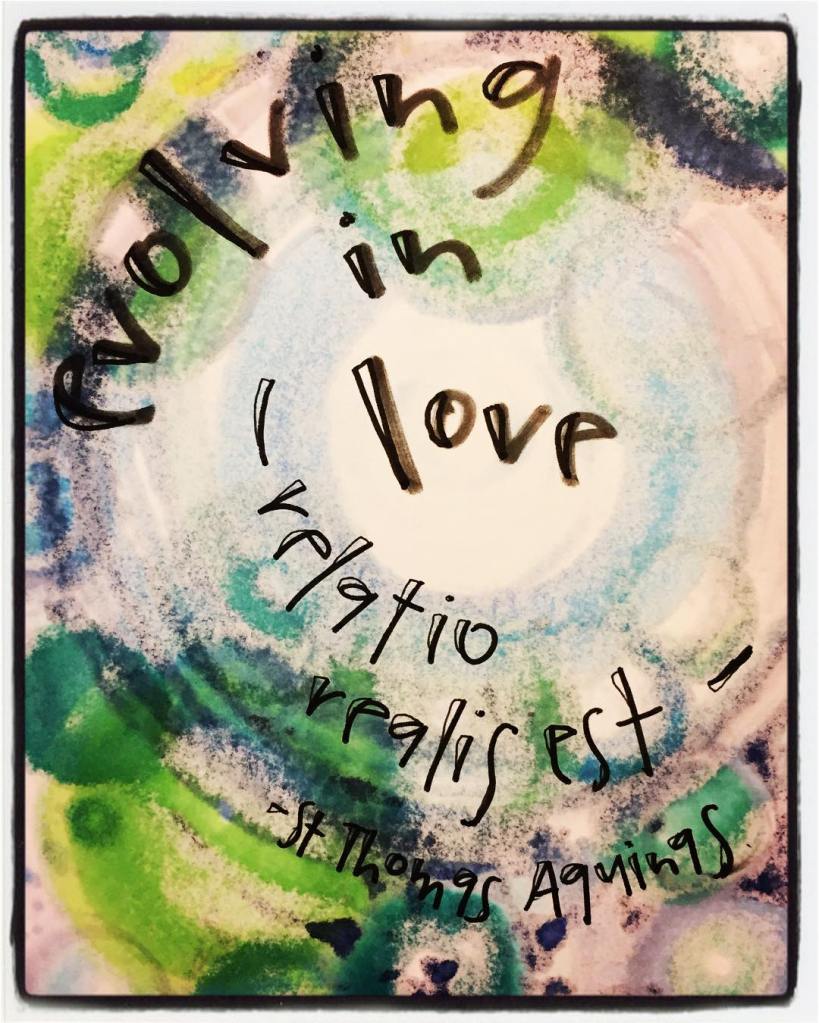 evolving
in
love
- relatio
realis est -
- St Thomas Aquinas